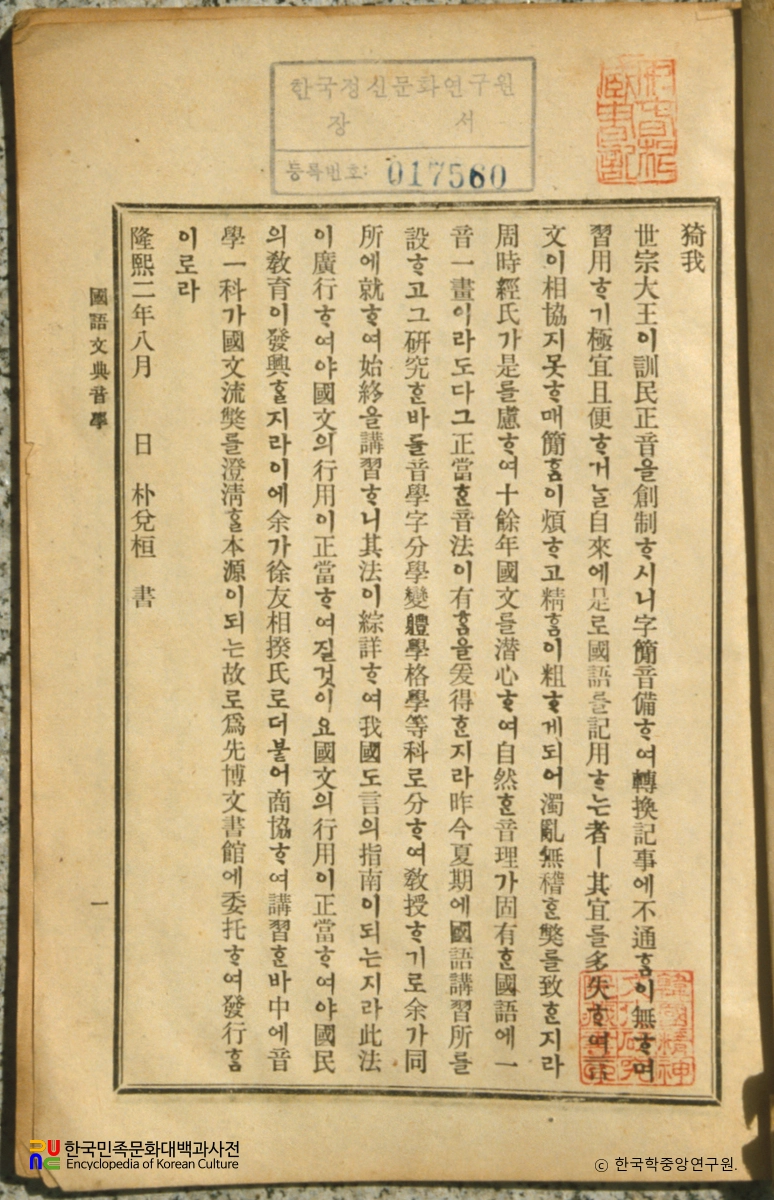 한국정신문화연구원
장 서
등록번호: 017560
猗我
世宗大王이訓民正音을創制ᄒᆞ시니字簡音備ᄒᆞ여轉換記事에不通ᄒᆞᆷ이無ᄒᆞ며
習用ᄒᆞ기極宜且便ᄒᆞ거ᄂᆞᆯ自來에是로國語를記用ᄒᆞ는者ㅣ其宜를多失ᄒᆞ여言
文이相協지못ᄒᆞ매簡ᄒᆞᆷ이煩ᄒᆞ고精ᄒᆞᆷ이粗ᄒᆞ게되어濁亂無稽ᄒᆞᆫ獘를致ᄒᆞᆫ지라
周時經氏가是를慮ᄒᆞ여十餘年國文를潜心ᄒᆞ여自然ᄒᆞᆫ音理가固有ᄒᆞᆫ國語에一
音一畫이라도다그正當ᄒᆞᆫ音法이有ᄒᆞᆷ을爰得ᄒᆞᆫ지라昨今夏期에國語講習所를
設ᄒᆞ고그硏究ᄒᆞᆫ바를音學字分學變軆學格學等科로分ᄒᆞ여敎授ᄒᆞ기로余가同
所에就ᄒᆞ여始終을講習ᄒᆞ니其法이綜詳ᄒᆞ여我國도言의指南이되는지라此法
이廣行ᄒᆞ여야國文의行用이正當ᄒᆞ여질것이요國文의行用이正當ᄒᆞ여야國民
의敎育이發興ᄒᆞᆯ지라이에余가徐友相揆氏로더불어商協ᄒᆞ여講習ᄒᆞᆫ바中에音
學一科가國文流獘를澄淸ᄒᆞᆯ本源이되는故로爲先博文書館에委托ᄒᆞ여發行ᄒᆞᆷ
이로라
隆熙二年八月 日 朴兌桓 書
國語文典音學
一
韓國精神
文化硏究
한국민족문화대백과사전
Encyclopedia of Korean Culture
ⓒ 한국학중앙연구원.